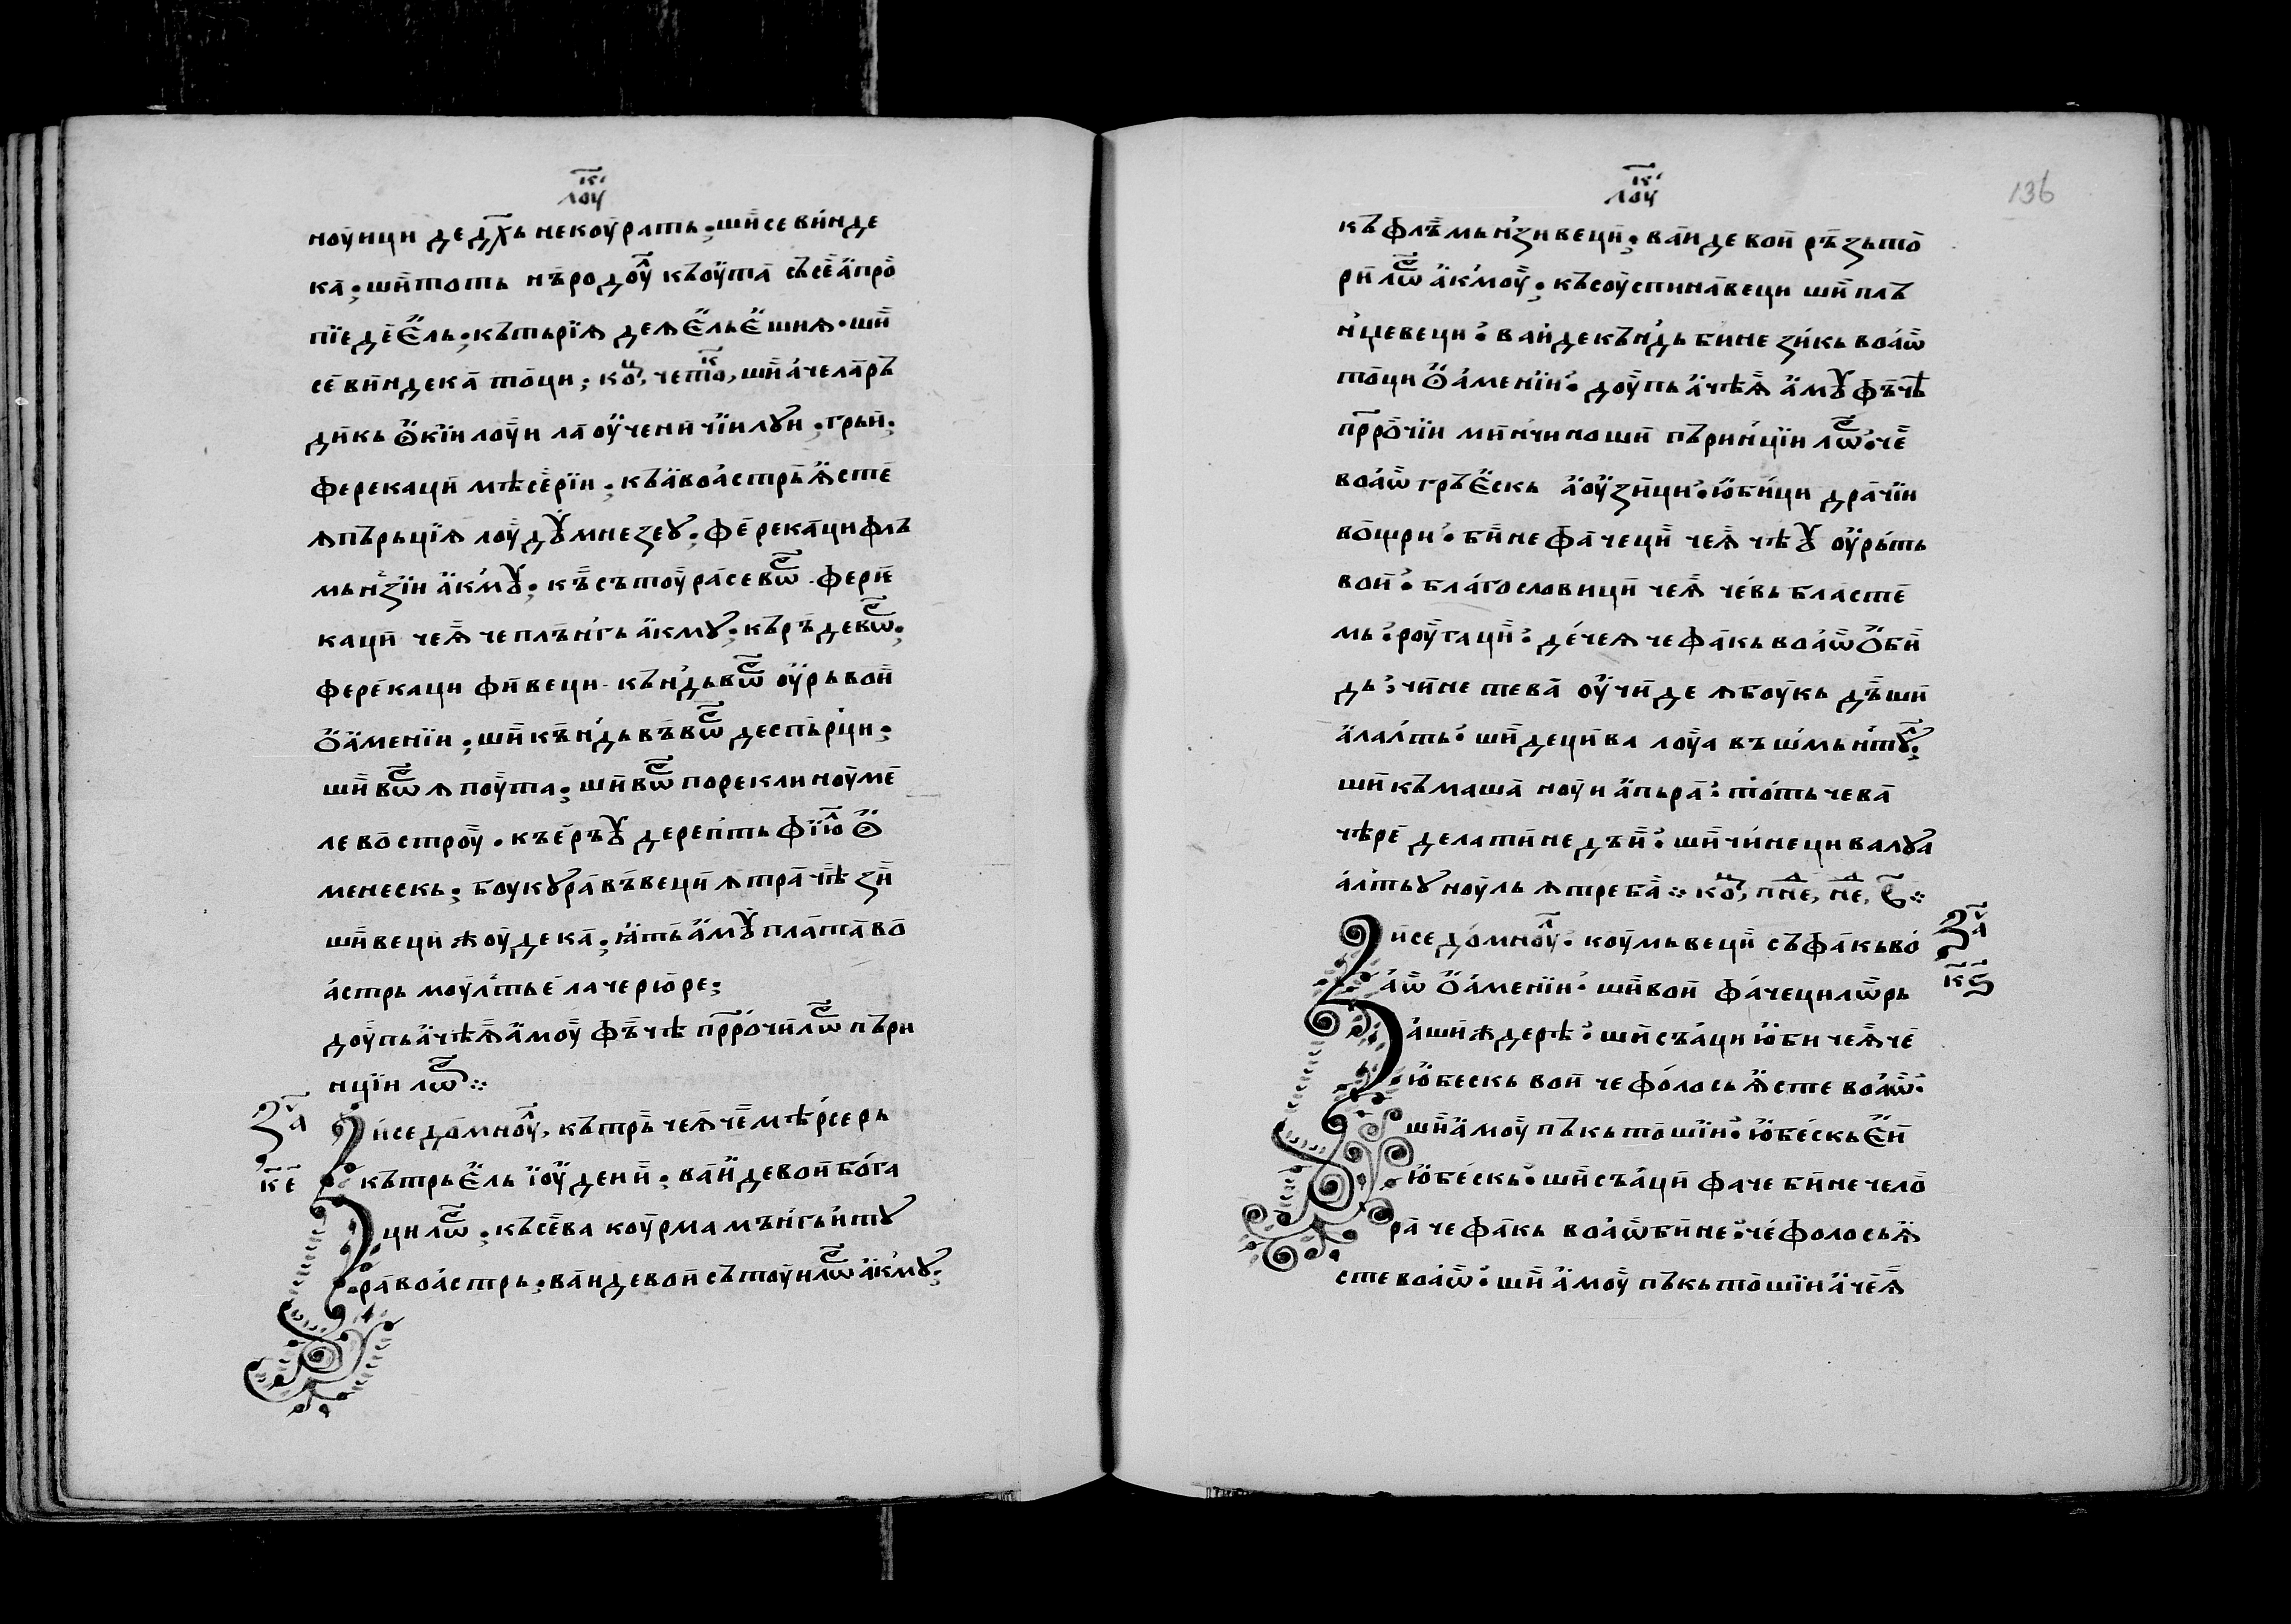 к҃ı
лоу
ноуници дедх҃ь некоурать; шисевинде
ка; шитоть нъродоу̑л къоута съсеапро
пїедеель; кътьрїѧ деѧельешиѧ. ши
севиндека тоци; коц҃, чет҃о, шиачеларъ
дикь ѻкїи лоуи ла оученичїи лꙋи. грьи;
ферекаци мѣсерїи; къавоастрьѧсте
ѧпърьцїѧ лоу дꙋмнезеꙋ; ферекаци флъ
мьнзїи акмꙋ; къ сътоурасевѡс҃. фери
каци чеѧ чеплънгь акмꙋ; кържъдевѡс҃;
ферекаци фивеци. къндьвѡс҃ оурьвои
ѻаменїи; шикъндьвъвѡс҃ деспърци;
ши вѡс҃ ѧ поута; шивѡс҃ порекли ноуме
ле востроу. къеръꙋ дерепть фїюл ѻ
менескь; боукꙋравъвеци ѧтрачѣ зи
ши веци ѫоудека; ꙗть амꙋ платаво
астрь моултье лачерюре;
доупьачѣѧамоу фъчѣ пр҃рочилѡс҃ пъри
нцїи лѡс҃ ⁘
за҃ч Зисе домноул, кътрь чеѧ чемѣрсерь
к҃е кътрьель їоудеии; ваидевоибога
ци лѡс҃; късева коурма мънгьитꙋ
равоастрь; ваидевоисътоуилѡс҃ акмꙋ;
к҃ı
лоу
136
къфлъмьнзивеци; ваидевои ръзьто
рилѡс҃ акмоу; късоуспинавеци шиплъ
нцевеци: ваидекъндь бине зикь воаѡ
тоци ѻаменїи: доупь ачѣѧ амꙋ фъчѣ
пр҃рочїи минчиноши пъринцїи лѡс҃: че
воаѡ гръескь аоузици: юбици драчїи
вощри: бинефачеци чеѧ чѣꙋ оурьть
вои: благословици чеѧ чевь бласте
мь: роугаци: дечеѧ чефакь воаѡ ѻби
дь: чинетева оучиде ѧбоукь дъши
алалть: шидецива лоуа въшмьнтꙋл;
шикъмаша ноуи апьра: тоть чева
чѣре делатинедъи: ши чинеци валꙋа
алтьꙋ ноуль ѧтреба ⁘ коц҃, пн҃е, н҃е, в҃ ⁘
Зисе домноул. коумьвеци съфакьво за҃ч
аѡ ѻаменїи: шивои фачецилѡрь к҃ѕ
ашиѫдерѣ: шисъаци юби чеѧче
юбескь вои че фолось ѧсте воаѡ:
ши амоу пъкьтошїи: юбескьеи
юбескь: шисъаци фаче бинечело
ра чефакь воаѡбине: чефолосьѧ
стевоаѡ: ши амоу пъкьтошїиачеѧ